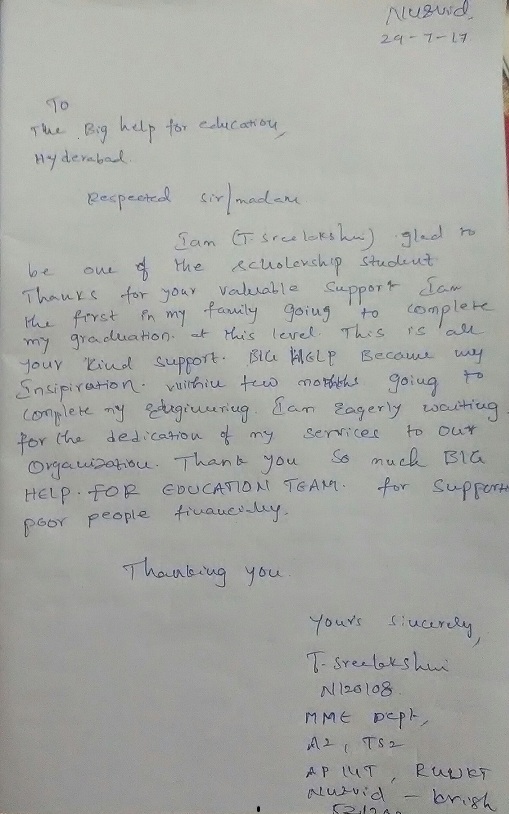 Nuzvid,
29-7-17
To
The Big help for education,
Hyderabad.
Respected sir/madam
Iam (T. Sreelakshmi) glad to
be one of the scholorship student
Thanks for your valuable support Iam
the first in my family going to complete
my graduation. at this level. This is all
your kind support. BIG HELP Became my
Insipiration. within few months going to
complete my Engineering. Iam Eagerly waiting
for the dedication of my services to our
Organization. Thank you so much BIG
HELP. FOR EDUCATION TEAM. for support
poor people financially.
Thanking you.
Yours sincerely,
T. Sreelakshmi
N120108
MME Dept,
A2, TS2
AP IIIT, RUKKT
Nuzvid - krish